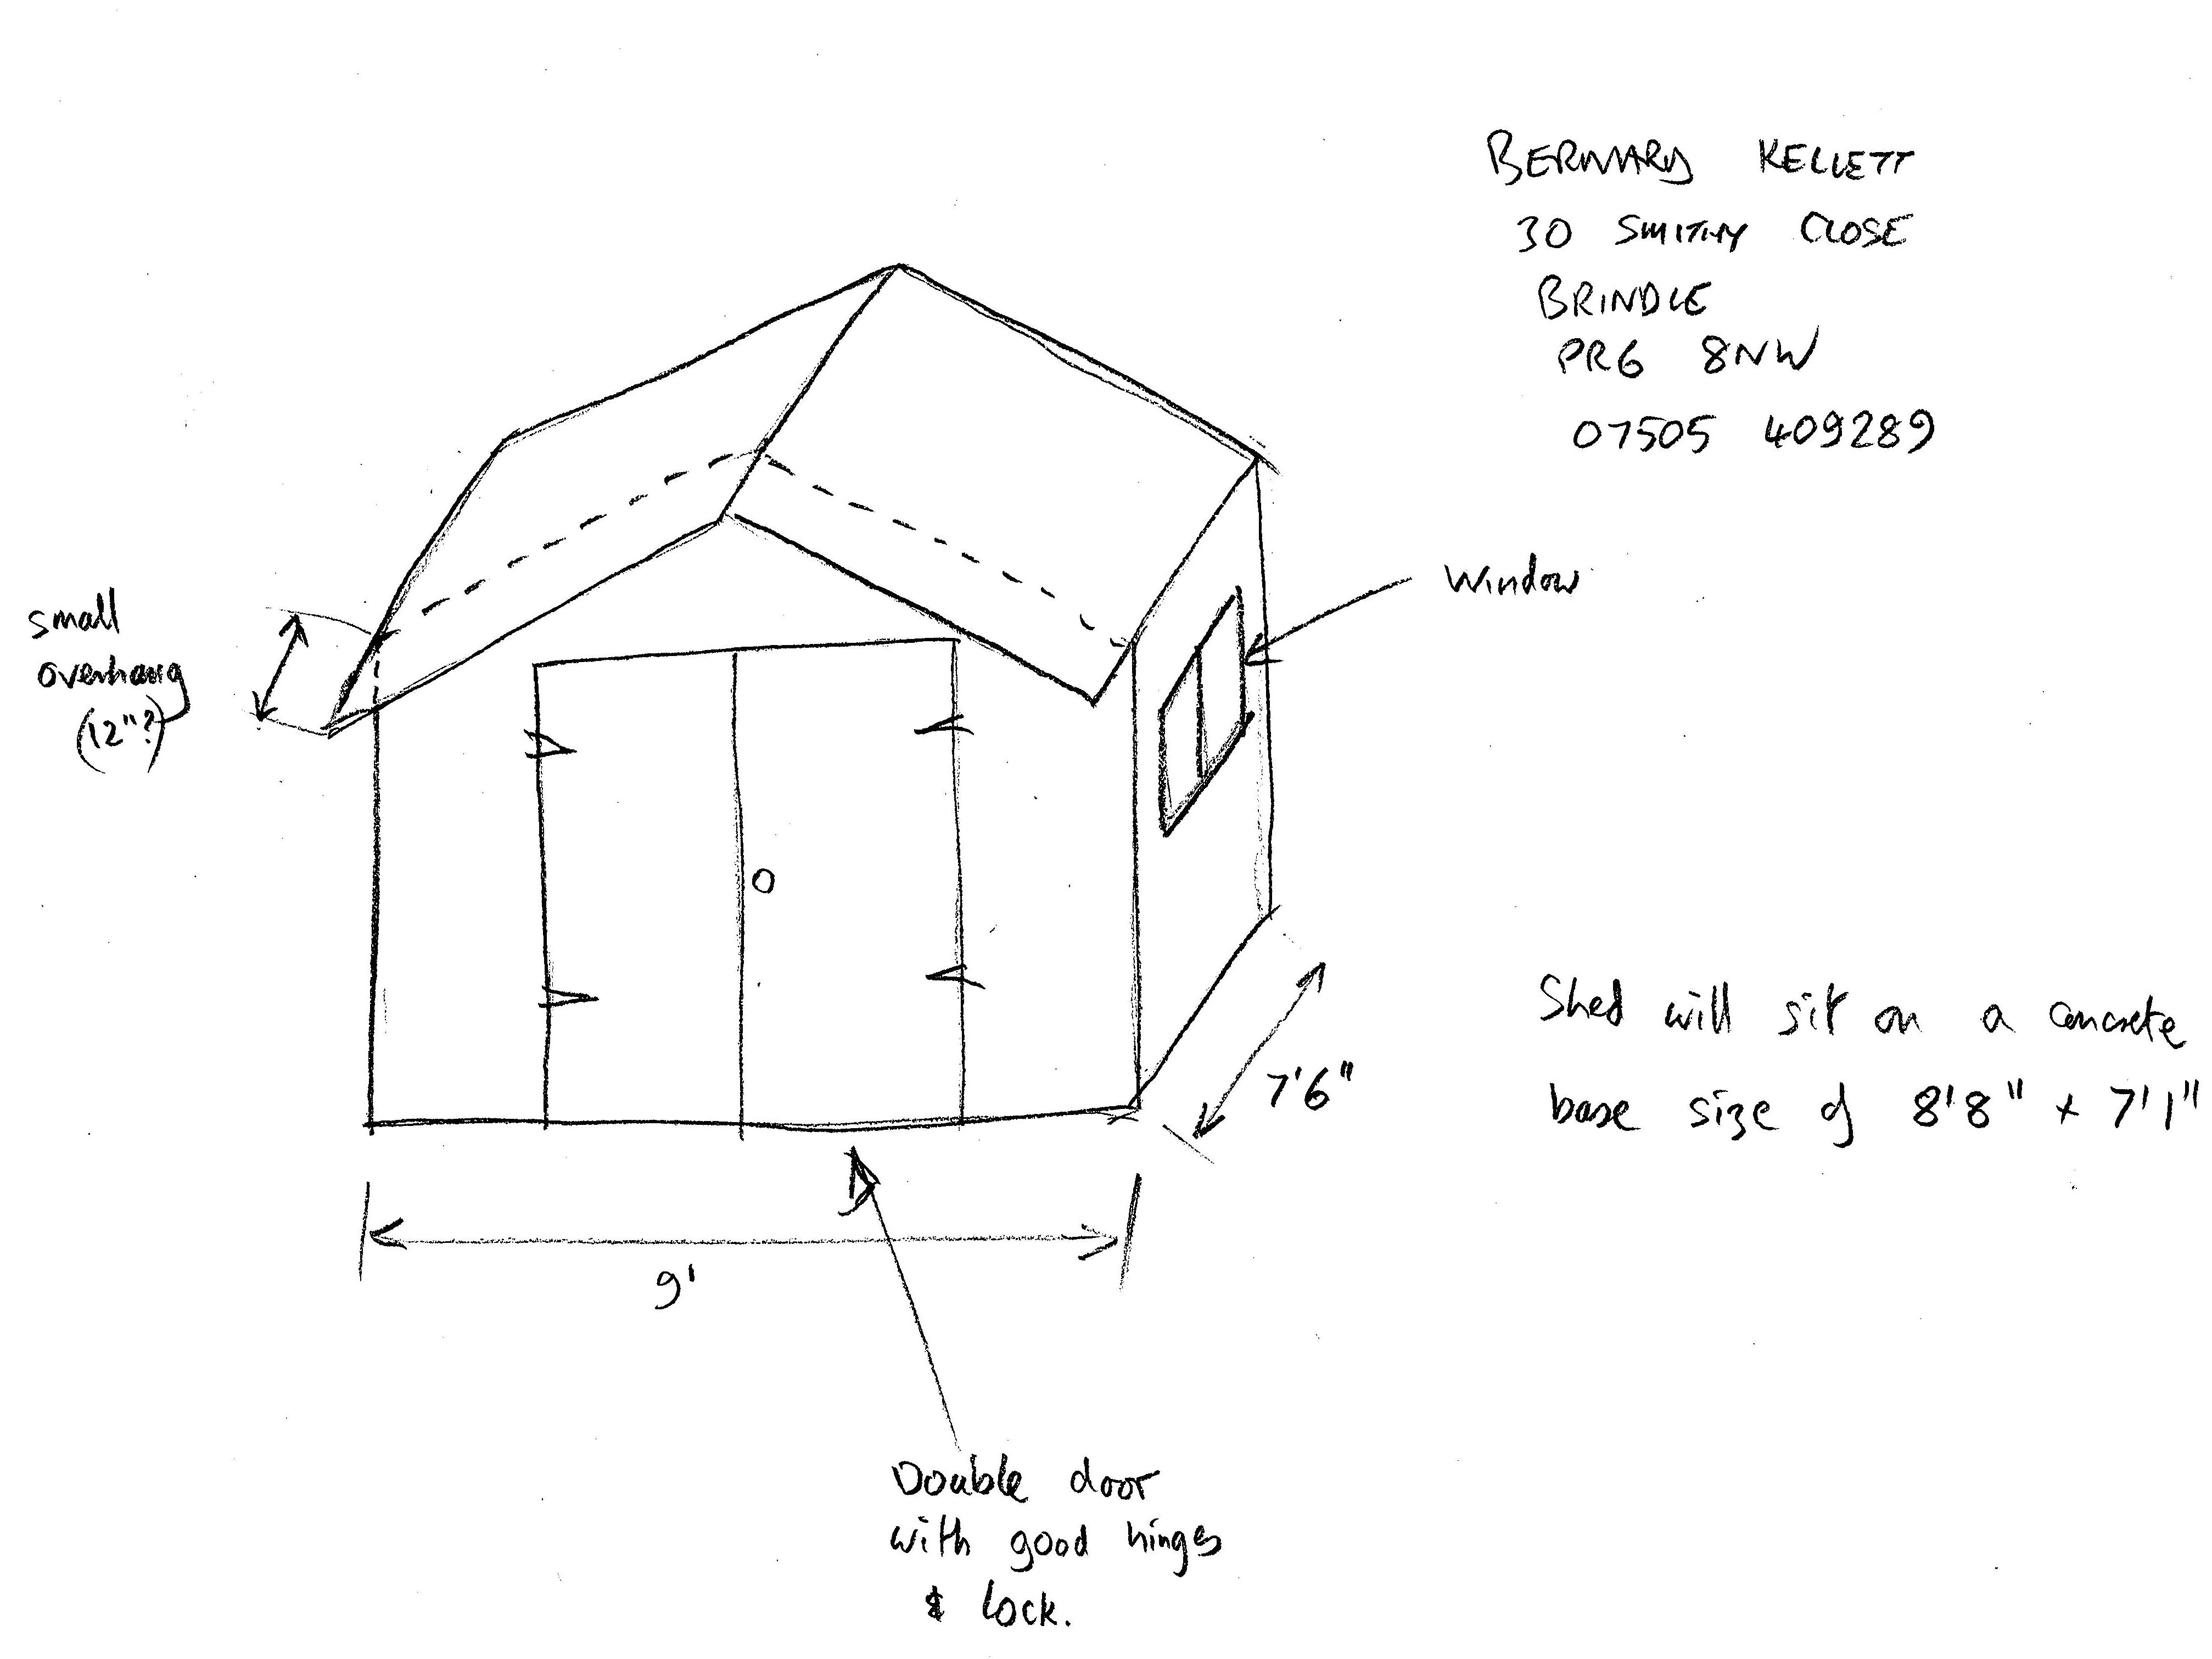 BERNARD KELLETT
30 SMITHY CLOSE
BRINDLE
PR6 8NW
07505 409289
Window
small
overhang
(12"?)
Shed will sit on a concrete
base size of 8'8" x 7'1"
7'6"
9'
Double door
with good hinges
& lock.